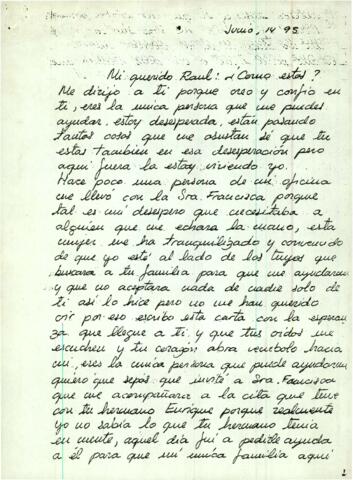 Junio, 14 95
Mi querido Raul: ¿Como estas?
Me dirijo a ti porque creo y confio en
ti, eres la unica persona que me puedes
ayudar, estoy desesperada, estan pasando
tantas cosas que me asustan sé que tu
estas tambien en esa desesperación pero
aqui fuera la estoy viviendo yo.
Hace poco una persona de mi oficina
me llevo con la Sra. Francisca porque
tal es mi desespero que necesitaba a
alguien que me echara la mano, esta
mujer me ha tranquilizado y convencido
de que yo esté al lado de los tuyos que
buscara a tu familia para que me ayudaran
y que no aceptara nada de nadie solo de
ti asi lo hice pero no me han querido
oir por eso escribo esta carta con la esperan
za que llegue a ti y que tus oidos me
escuchen y tu corazón abra hacia
mi, eres la unica persona que puede ayudarme
quiero que sepas que invité a Sra. Francisca
que me acompañara a la cita que tuve
con tu hermano Enrique porque realmente
yo no sabia lo que tu hermano tenia
en mente, aquel dia fui a pedirle ayuda
a él para que mi unica familia aqui